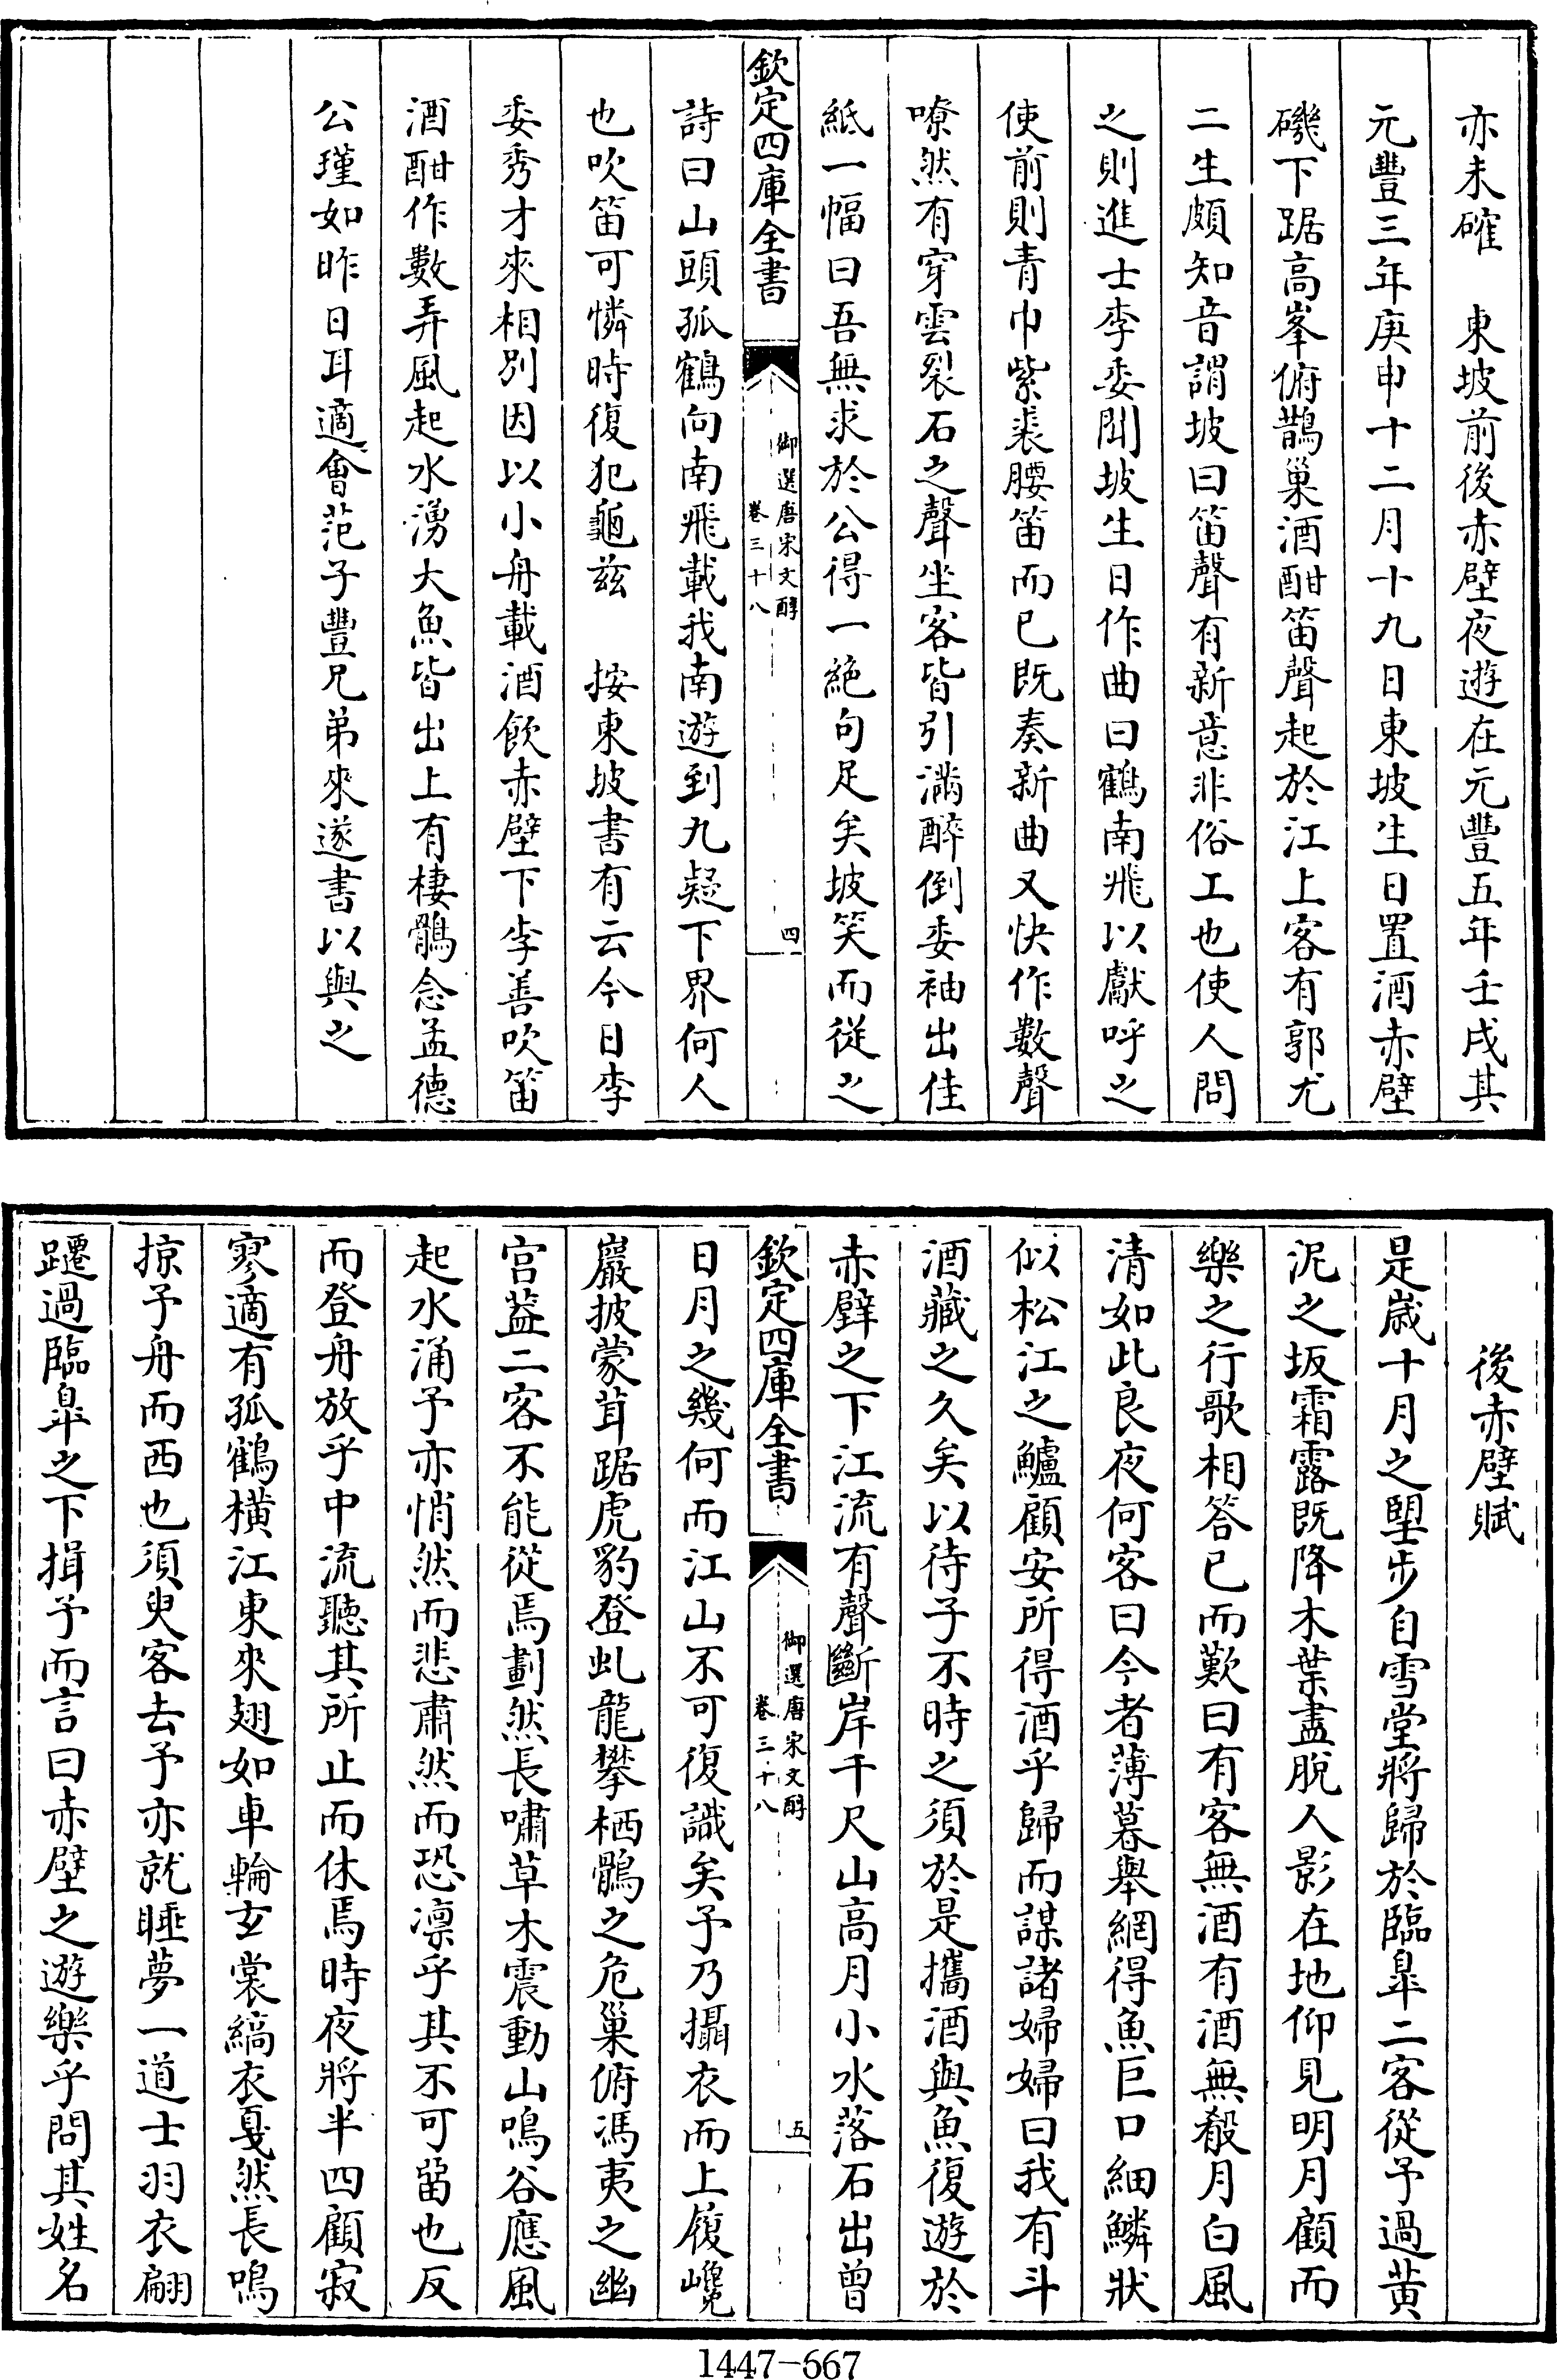 亦未確　東坡前後赤壁夜遊在元豐五年壬戌其
元豐三年庚申十二月十九日東坡生日置酒赤壁
磯下踞高峯俯鵲巢酒酣笛聲起於江上客有郭尤
二生頗知音謂坡曰笛聲有新意非俗工也使人問
之則進士李委聞坡生日作曲曰鶴南飛以獻呼之
使前則青巾紫裘腰笛而已既奏新曲又快作數聲
嘹然有穿雲裂石之聲坐客皆引滿醉倒委袖出佳
紙一幅曰吾無求於公得一絶句足矣坡笑而從之
欽定四庫全書
御選唐宋文醇
卷三十八
四
詩曰山頭孤鶴向南飛載我南遊到九疑下界何人
也吹笛可憐時復犯龜兹　按東坡書有云今日李
委秀才來相别因以小舟載酒飲赤壁下李善吹笛
酒酣作數弄風起水湧大魚皆出上有棲鶻念孟德
公瑾如昨日耳適會范子豐兄弟來遂書以與之
後赤壁賦
是歲十月之朢步自雪堂將歸於臨皐二客從予過黄
泥之坂霜露既降木葉盡脱人影在地仰見明月顧而
樂之行歌相答已而歎曰有客無酒有酒無殽月白風
清如此良夜何客曰今者薄暮舉網得魚巨口細鱗狀
似松江之鱸顧安所得酒乎歸而謀諸婦婦曰我有斗
酒藏之久矣以待子不時之須於是攜酒與魚復遊於
赤壁之下江流有聲斷岸千尺山高月小水落石出曾
欽定四庫全書
御選唐宋文醇
卷三十八
五
日月之幾何而江山不可復識矣予乃攝衣而上履巉
巖披蒙茸踞虎豹登虬龍攀栖鶻之危巢俯馮夷之幽
宫葢二客不能從焉劃然長嘯草木震動山鳴谷應風
起水涌予亦悄然而悲肅然而恐凜乎其不可留也反
而登舟放乎中流聽其所止而休焉時夜將半四顧寂
寥適有孤鶴横江東來翅如車輪玄裳縞衣戛然長鳴
掠予舟而西也須臾客去予亦就睡夢一道士羽衣翩
躚過臨皐之下揖予而言曰赤壁之遊樂乎問其姓名
1447-667